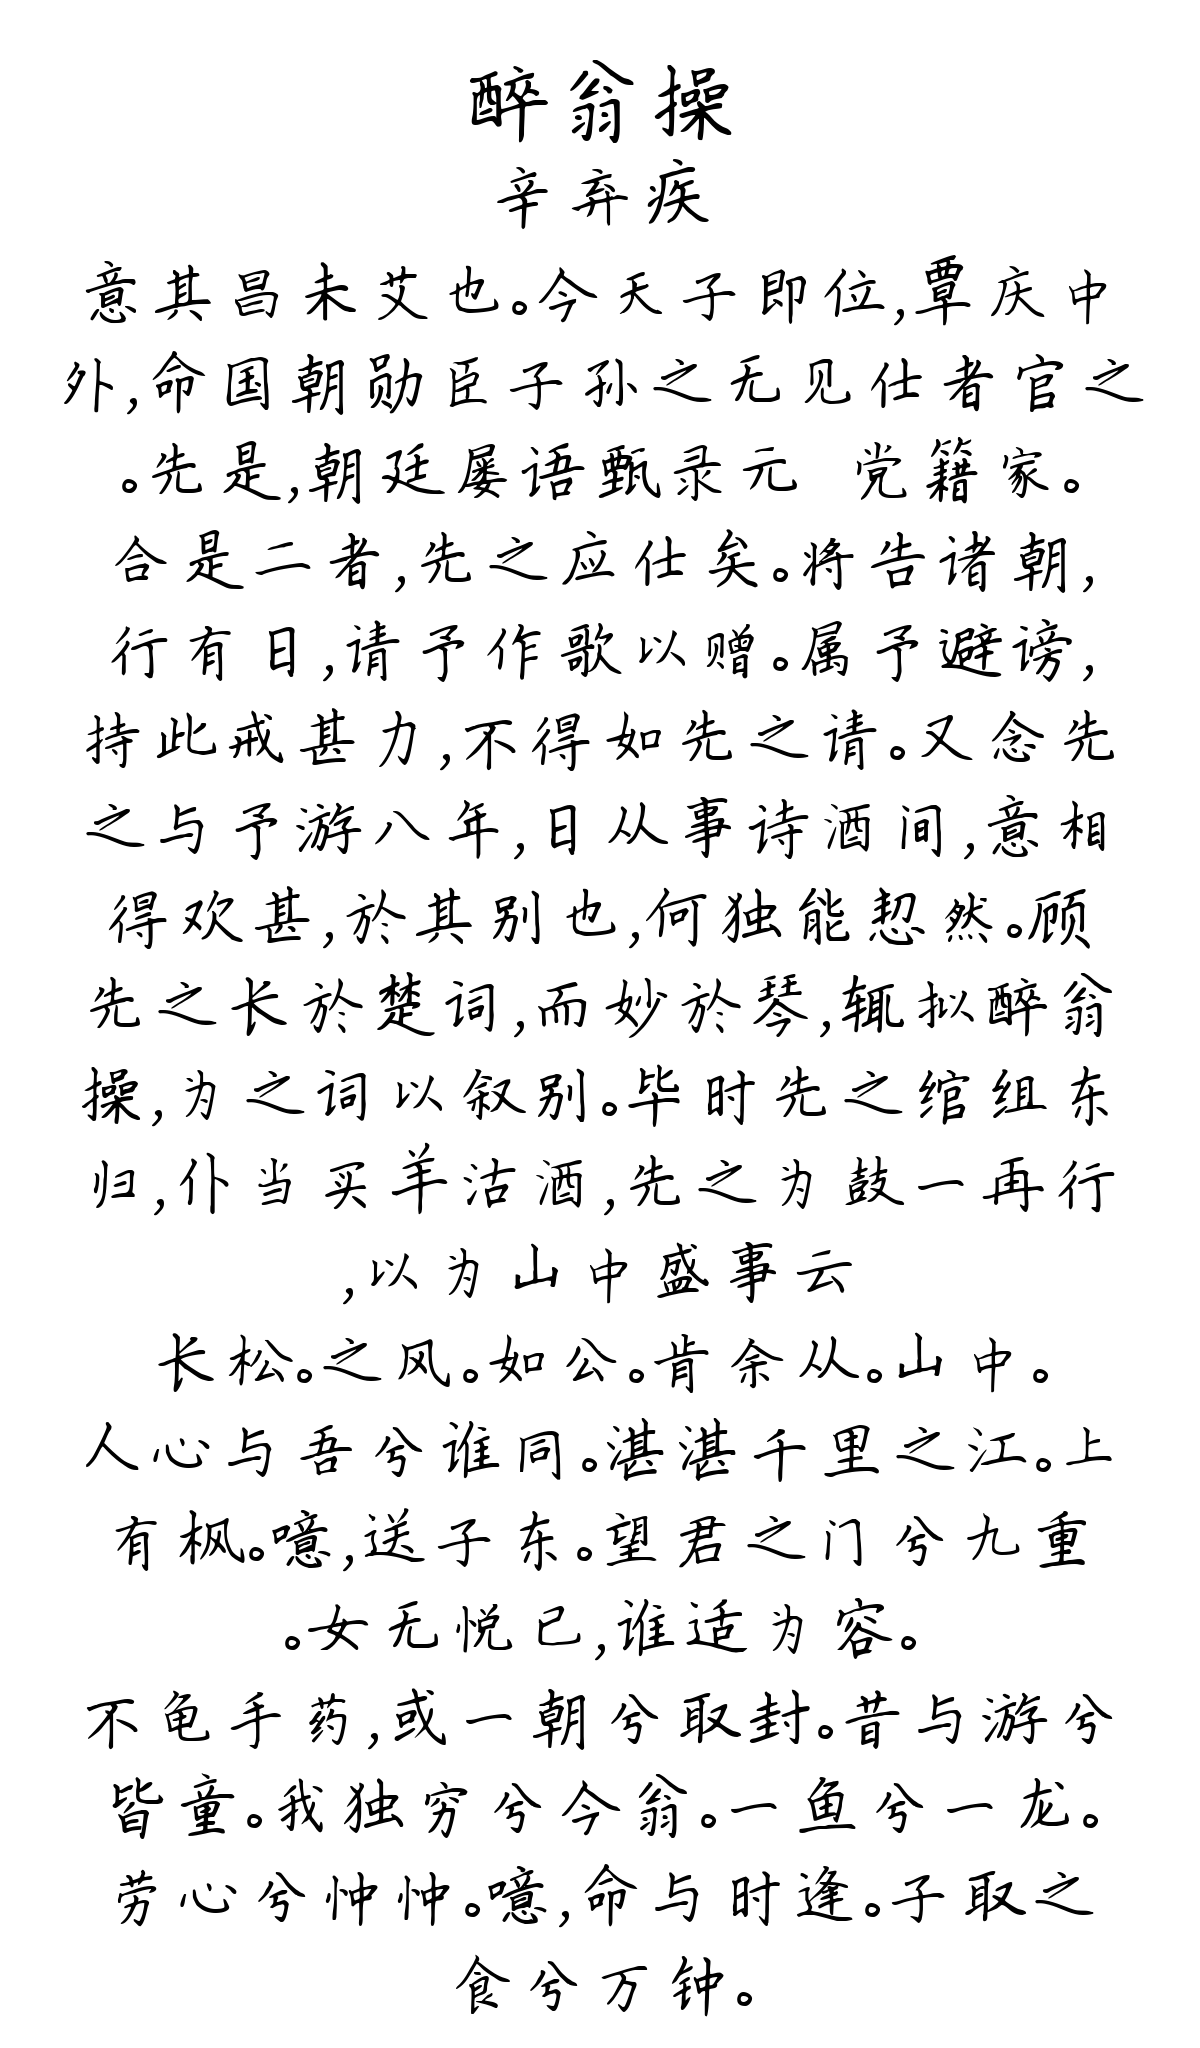 醉翁操
辛弃疾
意其昌未艾也。今天子即位,覃庆中
外,命国朝勋臣子孙之无见仕者官之
。先是,朝廷屡语甄录元 党籍家。
合是二者,先之应仕矣。将告诸朝,
行有日,请予作歌以赠。属予避谤,
持此戒甚力,不得如先之请。又念先
之与予游八年,日从事诗酒间,意相
得欢甚,於其别也,何独能恝然。顾
先之长於楚词,而妙於琴,辄拟醉翁
操,为之词以叙别。毕时先之绾组东
归,仆当买羊沽酒,先之为鼓一再行
,以为山中盛事云
长松。之风。如公。肯余从。山中。
人心与吾兮谁同。湛湛千里之江。上
有枫。噫,送子东。望君之门兮九重
。女无悦已,谁适为容。
不龟手药,或一朝兮取封。昔与游兮
皆童。我独穷兮今翁。一鱼兮一龙。
劳心兮忡忡。噫,命与时逢。子取之
食兮万钟。